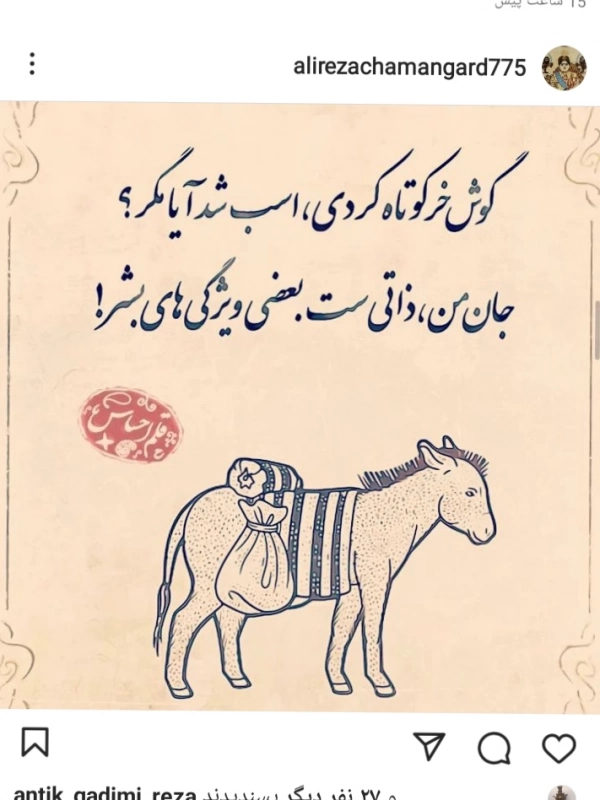 ۱۵ ساعت پیش
alirezachamangard775
گوش خر کوتاه کردی، اسب شد آیا مگر؟
جان من، ذاتی ست بعضی ویژگی های بشر!
قلم احساس
antik_qadimi_reza و ۲۷ نفر دیگر پسندیدند